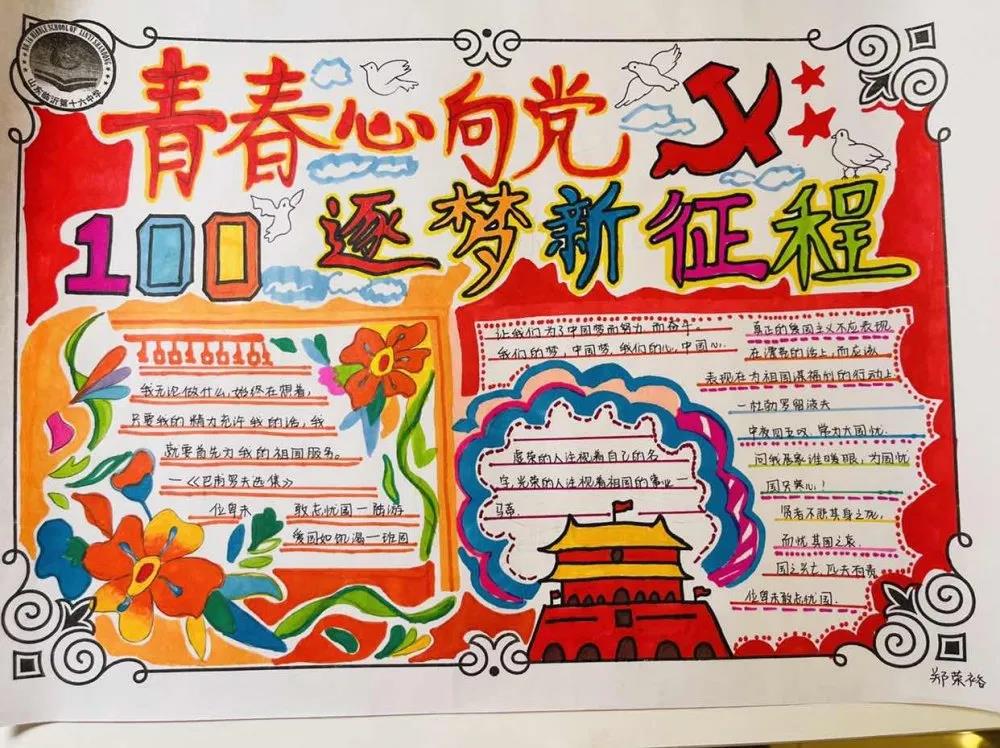 山东临沂第十六中学
青春心向党
100 逐梦新征程
我无论做什么,始终在想着,
只要我的精力允许我的话,我
就要首先为我的祖国服务。
—《巴甫罗夫选集》
位卑未敢忘忧国—陆游
爱国如饥渴—班固
让我们为了中国梦而努力而奋斗。
我们的梦,中国梦,我们的心,中国心.
虚荣的人注视着自己的名
字,光荣的人注视着祖国的事业—
马蒂
真正的爱国主义不应表现
在漂亮的话上,而应该
表现在为祖国谋福利的行动上
—杜勃罗留波夫
中夜四五叹,常为大国忧.
问我居家谁暖眼,为国忧
国只寒心!
贤者不悲其身之死,
而忧其国之衰.
国之兴亡,匹夫有责
位卑未敢忘忧国.
郑荣裕